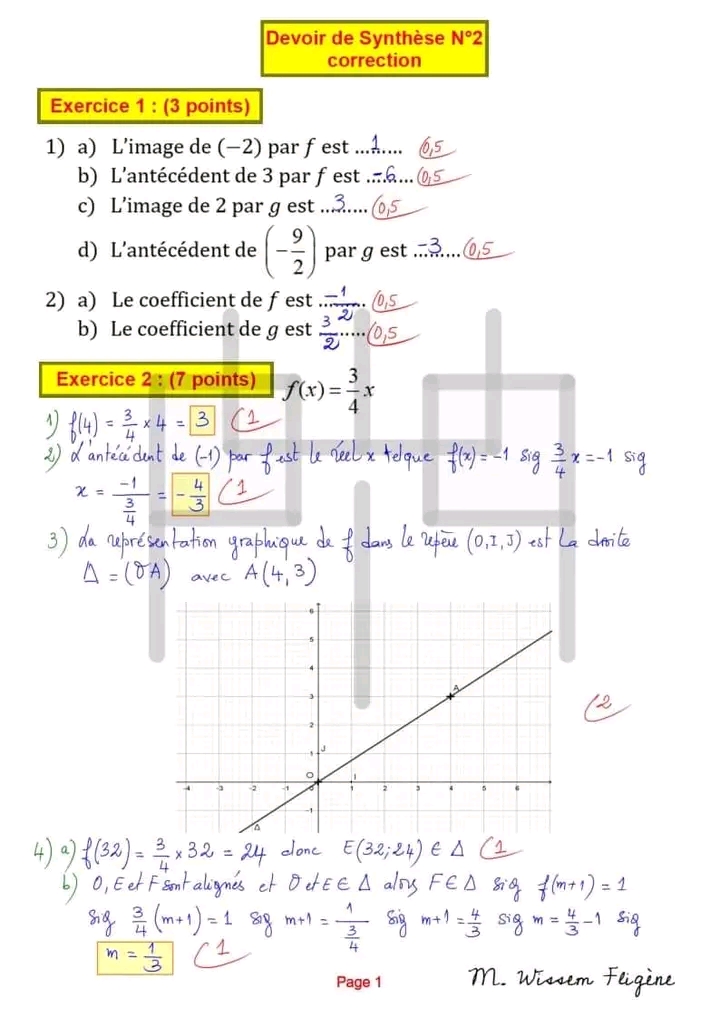 Devoir de Synthèse N°2
correction
Exercice 1 : (3 points)
1) a) L'image de (−2) par f est ...1.... (0,5
b) L'antécédent de 3 par f est ..-6... (0,5
c) L'image de 2 par g est ...3..... (0,5
d) L'antécédent de (−9/2) par g est ..-3..... (0,5
2) a) Le coefficient de f est ...-1/2... (0,5
b) Le coefficient de g est 3/2..... (0,5
Exercice 2 : (7 points) f(x) = 3/4 x
1) f(4) = 3/4 × 4 = 3 (1
2) L'antécédent de (-1) par f est le réel x telque f(x) = -1 sig 3/4 x = -1 sig
x = -1/(3/4) = -4/3 (1
3) La représentation graphique de f dans le repère (O, I, J) est La droite
Δ = (OA) avec A(4, 3)
6
5
4
3 A
2
1 J
O
-4 -3 -2 -1 0 1 I 2 3 4 5 6
-1
Δ
(2
4) a) f(32) = 3/4 × 32 = 24 donc E(32; 24) ∈ Δ (1
b) O, E et F sont alignés et O et E ∈ Δ alors F ∈ Δ sig f(m+1) = 1
sig 3/4 (m+1) = 1 sig m+1 = 1/(3/4) sig m+1 = 4/3 sig m = 4/3 - 1 sig
m = 1/3 (1
Page 1 M. Wissem Fligène